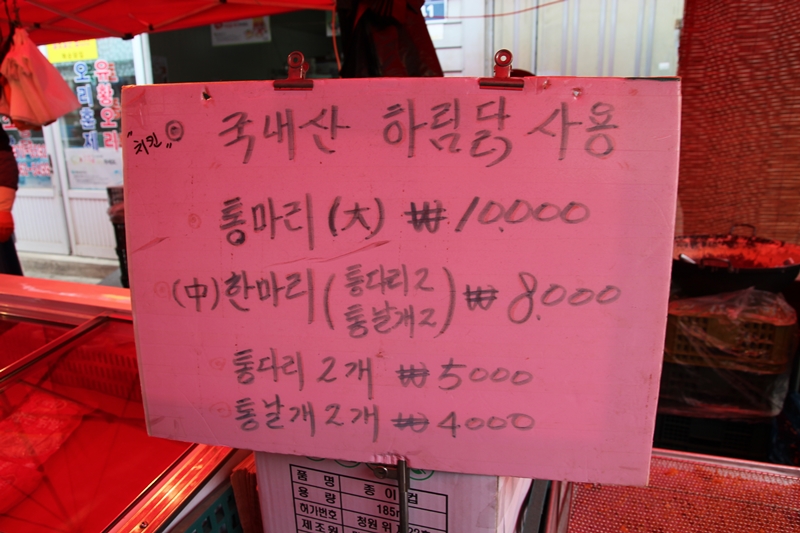 "치킨" ◎ 국내산 하림닭 사용
통마리 (大) ₩10,000
(中) 한마리 (통다리2 통날개2) ₩8,000
통다리 2개 ₩5000
통날개 2개 ₩4000
품 명 종이컵
용 량
허가번호
제조원 청원
유황오리
오리훈제